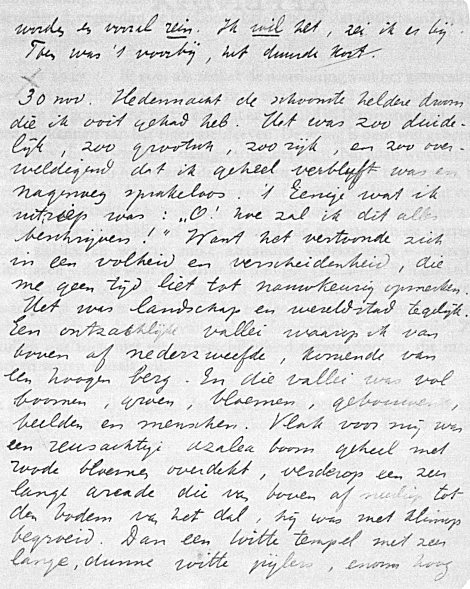 worden en vooral rein. Ik wil het, zei ik er bij.
Toen was 't voorbij, het duurde kort.
30 nov. Hedennacht de schoonste heldere droom
die ik ooit gehad heb. Het was zoo duide-
lijk, zoo grootsch, zoo rijk, en zoo over-
weldigend dat ik geheel verbluft was en
nagenoeg sprakeloos. 't Eenige wat ik
uitriep was: „O! hoe zal ik dit alles
beschrijven!" Want het vertoonde zich
in een volheid en verscheidenheid, die
me geen tijd liet tot nauwkeurig opmerken.
Het was landschap en wereldstad tegelijk.
Een ontzachlijke vallei waarop ik van
boven af nederzweefde, komende van
een hoogen berg. En die vallei was vol
boomen, groen, bloemen, gebouwen,
beelden en menschen. Vlak voor mij was
een reusachtige azalea boom geheel met
roode bloemen overdekt, verderop een zeer
lange arcade die van boven af tot
den bodem van het dal, hij was met klimop
begroeid. Dan een witte tempel met zeer
lange, dunne witte pijlers, enorm hoog